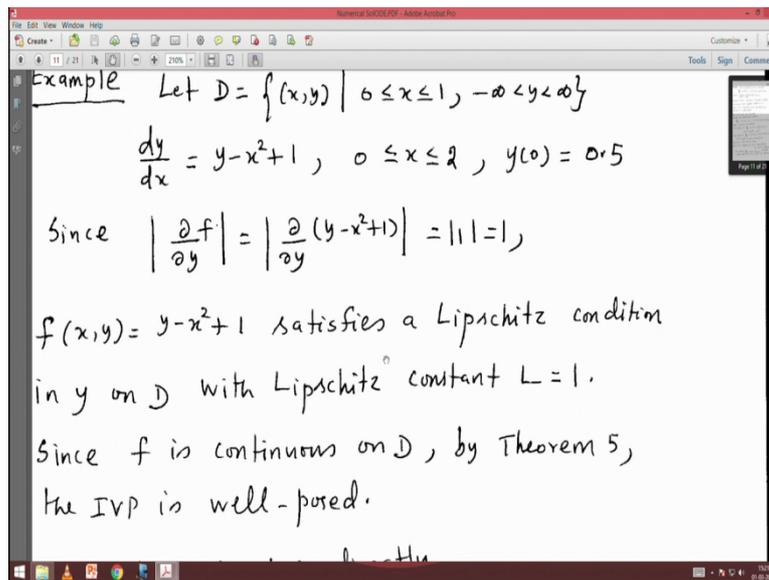 Numerical SolODE.PDF - Adobe Acrobat Pro
File Edit View Window Help
Create
Customize
11 / 21
210%
Tools Sign Comme
Example Let D = {(x,y) | 0 ≤ x ≤ 1, -∞ < y < ∞}
dy/dx = y-x²+1, 0 ≤ x ≤ 2, y(0) = 0.5
Since |∂f/∂y| = |∂/∂y (y-x²+1)| = |1| = 1,
f(x,y) = y-x²+1 satisfies a Lipschitz condition
in y on D with Lipschitz constant L = 1.
Since f is continuous on D, by Theorem 5,
the IVP is well-posed.
directly
Page 11 of 21